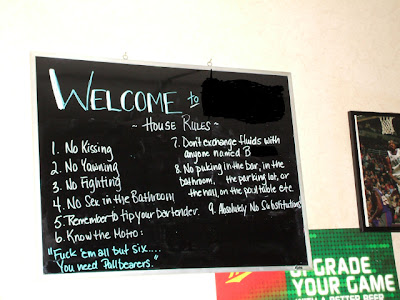 WELCOME to
~ HOUSE RULES ~
1. No Kissing
2. No Yawning
3. No Fighting
4. No Sex in the Bathroom
5. Remember to tip your bartender.
6. Know the Motto:
"Fuck 'em all but six....
You need Pallbearers."
7. Don't exchange fluids with
anyone named B
8. No puking in the bar, in the
bathroom, the parking lot, or
the hall, on the pool table etc
9. Absolutely No Substitutions
UPGRADE
YOUR GAME
WITH A BETTER BEER